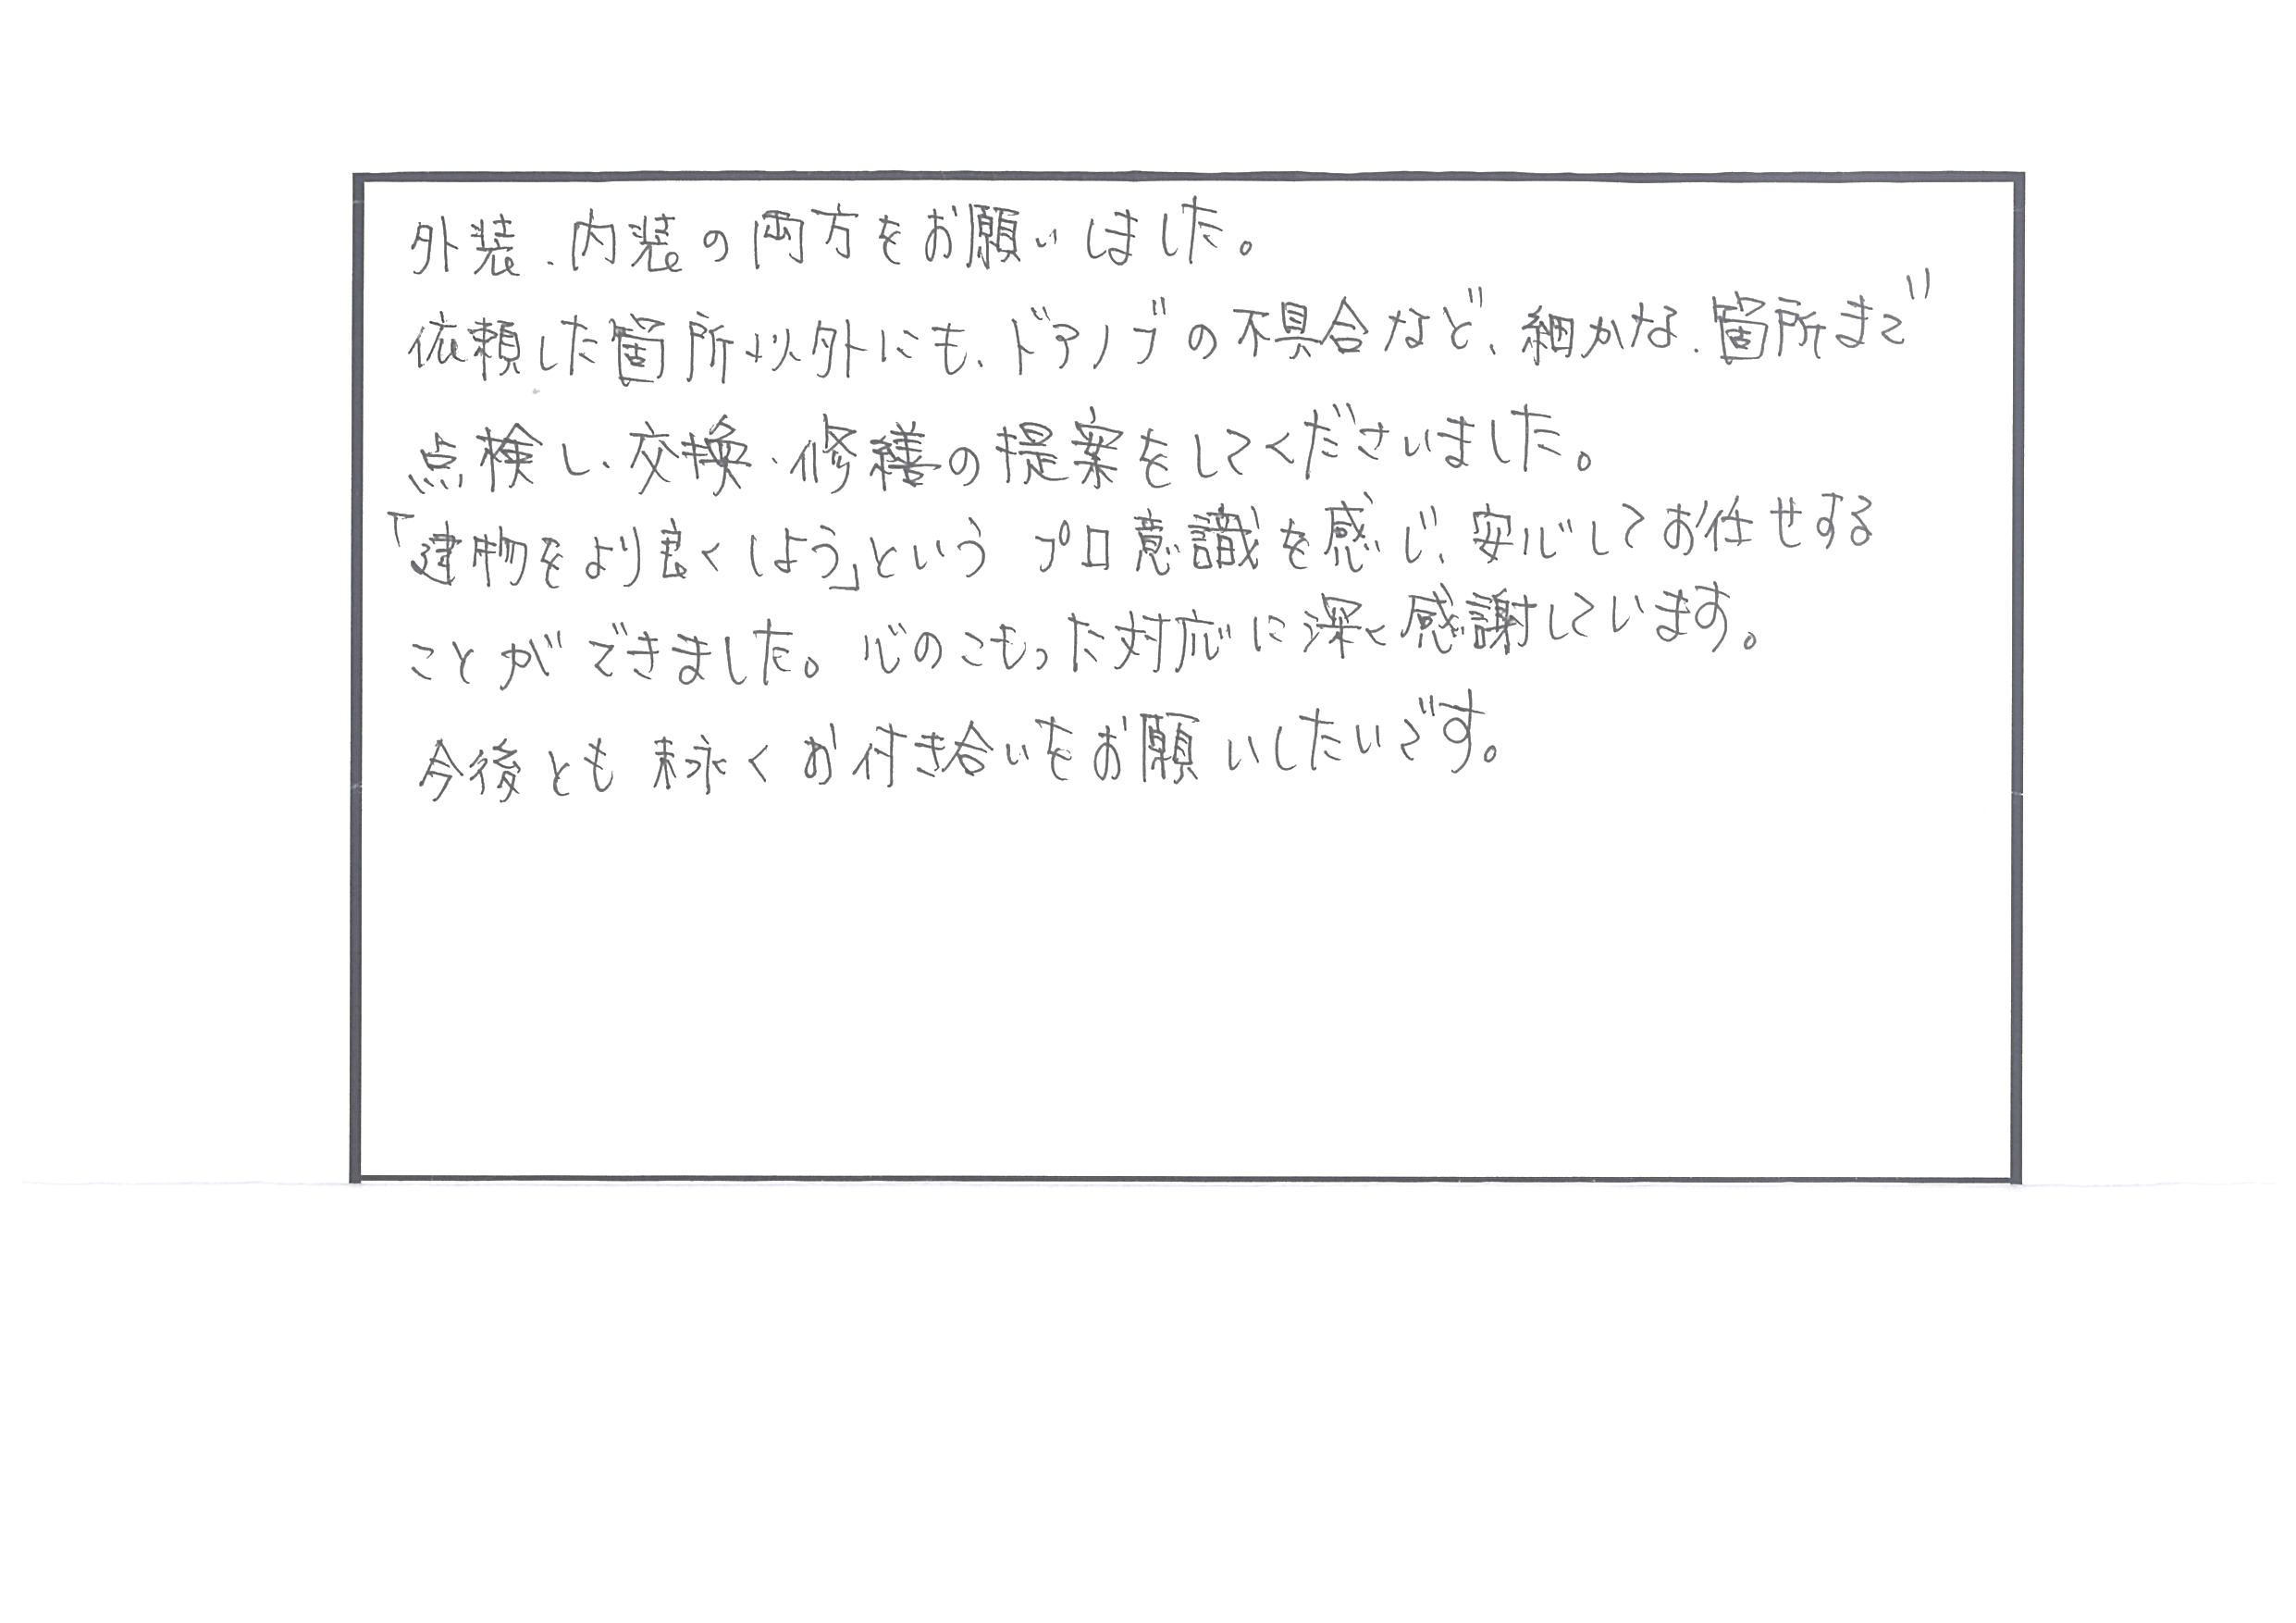 外装、内装の両方をお願いしました。
依頼した箇所以外にも、ドアノブの不具合など、細かな箇所まで
点検し、交換・修繕の提案をしてくださいました。
「建物をより良くしよう」という プロ意識を感じ、安心してお任せする
ことができました。心のこもった対応に深く感謝しています。
今後とも末永くお付き合いをお願いしたいです。